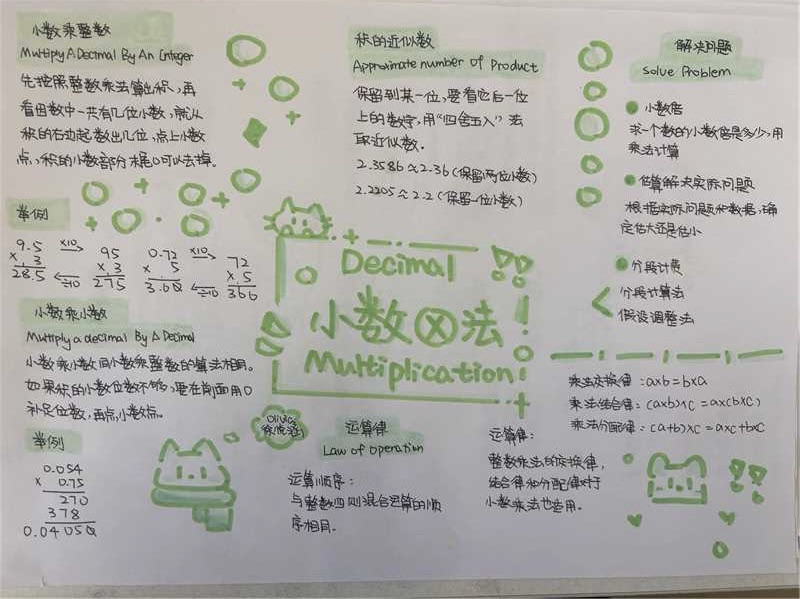 小数乘整数
Multiply A Decimal By An Integer
先按照整数乘法算出积，再
看因数中一共有几位小数，就从
积的右边起数出几位，点上小数
点，积的小数部分末尾0可以去掉。
举例
9.5 ×10 95 0.72 ×10 72
× 3 × 3 × 5 × 5
28.5 ÷10 275 3.60 ÷10 360
小数乘小数
Multiply a decimal By A Decimal
小数乘小数同小数乘整数的算法相同。
如果积的小数位数不够，要在前面用0
补足位数，再点小数点。
举例
0.054
× 0.75
270
378
0.04050
积的近似数
Approximate number Of Product
保留到某一位，要看它后一位
上的数字，用“四舍五入”法
取近似数。
2.3586≈2.36(保留两位小数)
2.2205≈2.2(保留一位小数)
Decimal
小数⊗法
Multiplication
Olivia
运算律
Law of Operation
运算顺序：
与整数四则混合运算的顺
序相同。
解决问题
Solve Problem
小数倍
求一个数的小数倍是多少，用
乘法计算
估算解决实际问题
根据实际问题和数据，确
定估大还是估小
分段计费
分段计算法
假设调整法
乘法交换律：a×b=b×a
乘法结合律：(a×b)×c=a×(b×c)
乘法分配律：(a+b)×c=a×c+b×c
运算律：
整数乘法的交换律，
结合律和分配律对于
小数乘法也适用。